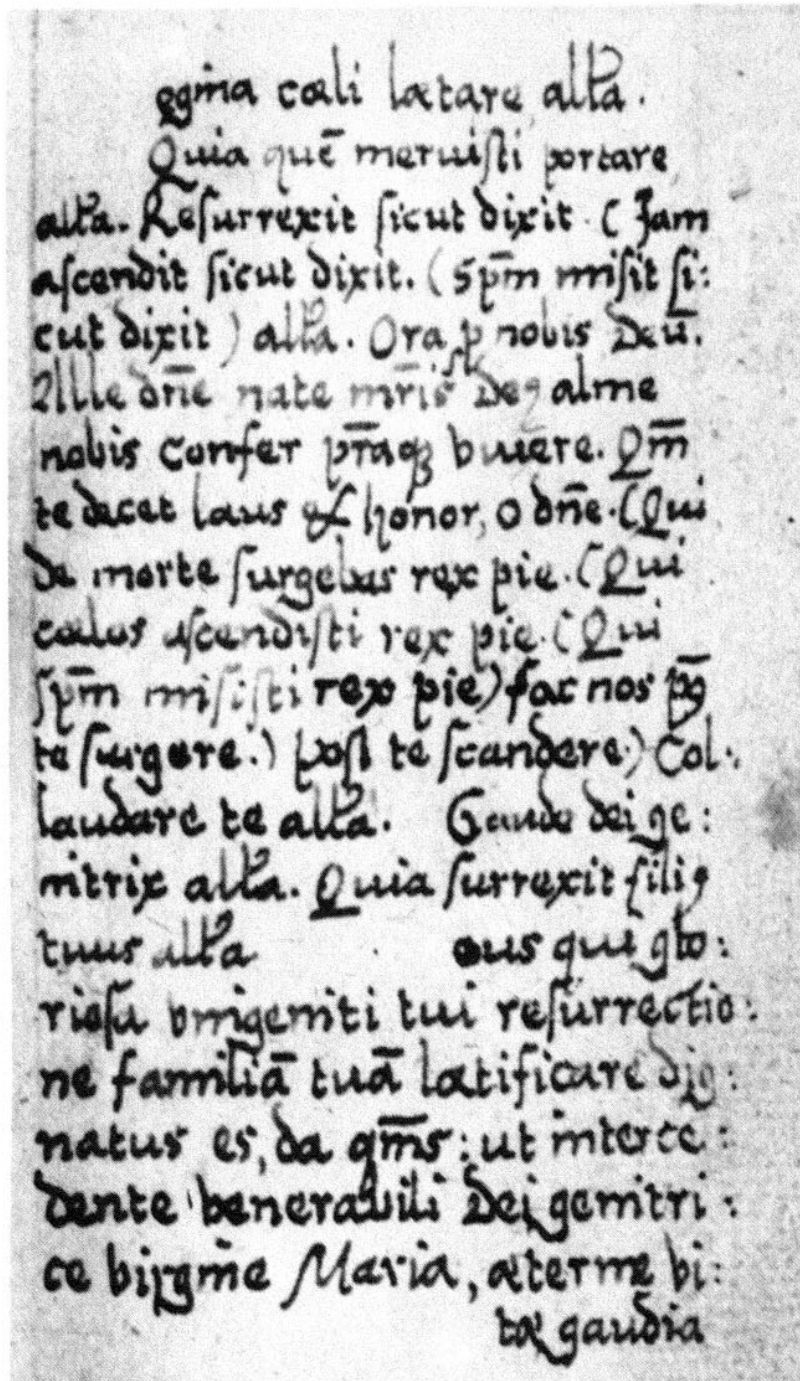 egina cœli lætare all̃a.
Quia quē meruisti portare
all̃a. Resurrexit sicut dixit. ( Jam
ascendit sicut dixit. ( Spm̄ misit si:
cut dixit ) all̃a. Ora p nobis Deū.
Ille dn̄e nate mr̄is Deꝰ alme
nobis confer pr̄aqꝫ viuere. Qm̄
te decet laus & honor, o dn̄e. ( Qui
de morte surgebas rex pie. ( Qui
cœlos ascendisti rex pie. ( Qui
spm̄ misisti rex pie ) fac nos
te surgere. ) post te scandere. ) Col:
laudare te all̃a. Gaude dei ge:
nitrix all̃a. Quia surrexit filiꝰ
tuus all̃a eus qui glo:
riosa vnigeniti tui resurrectio:
ne familiā tuā lætificare dig:
natus es, da qm̄s: ut interce:
dente venerabili Dei genitri:
ce virgine Maria, æternæ vi:
tæ gaudia